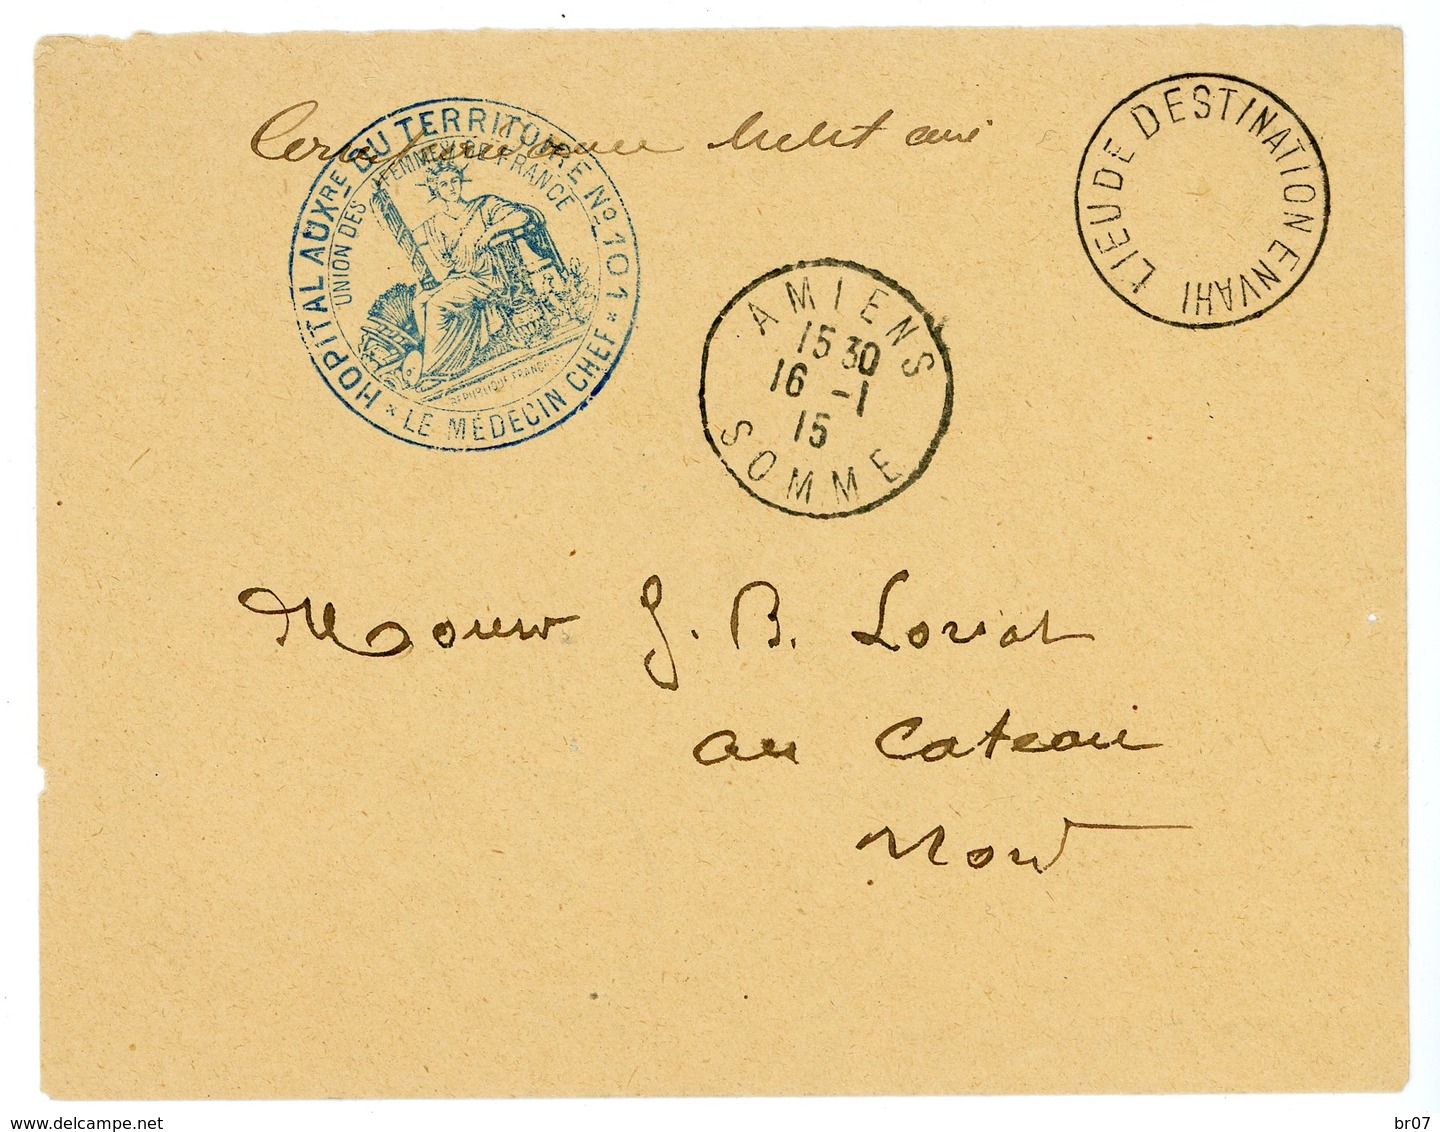 Correspondance Militaire
HOPITAL AUXRE DU TERRITOIRE No 101
UNION DES FEMMES DE FRANCE
REPUBLIQUE FRANCAISE
* LE MÉDECIN CHEF *
LIEU DE DESTINATION ENVAHI
AMIENS
15 30
16 -1
15
SOMME
J. B. Loriot
au Cateau
Nord
www.delcampe.net
br07